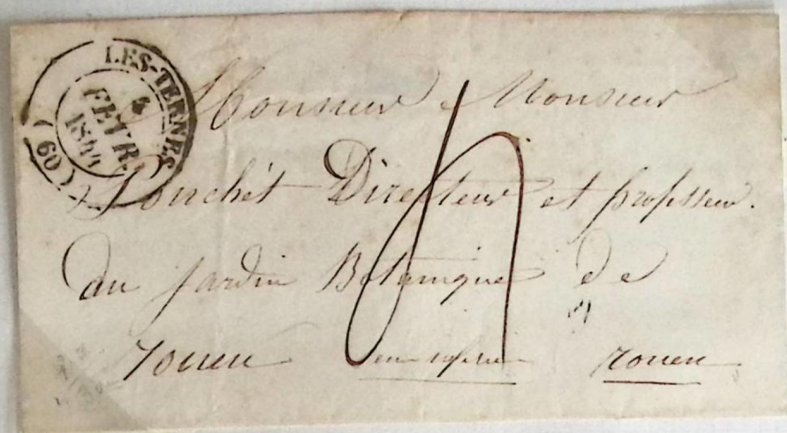 LES-TERNES
4
FEVR.
1844
(60)
Monsieur Monsieur
Pouchet Directeur et professeur
du jardin Botanique de
rouen rouen